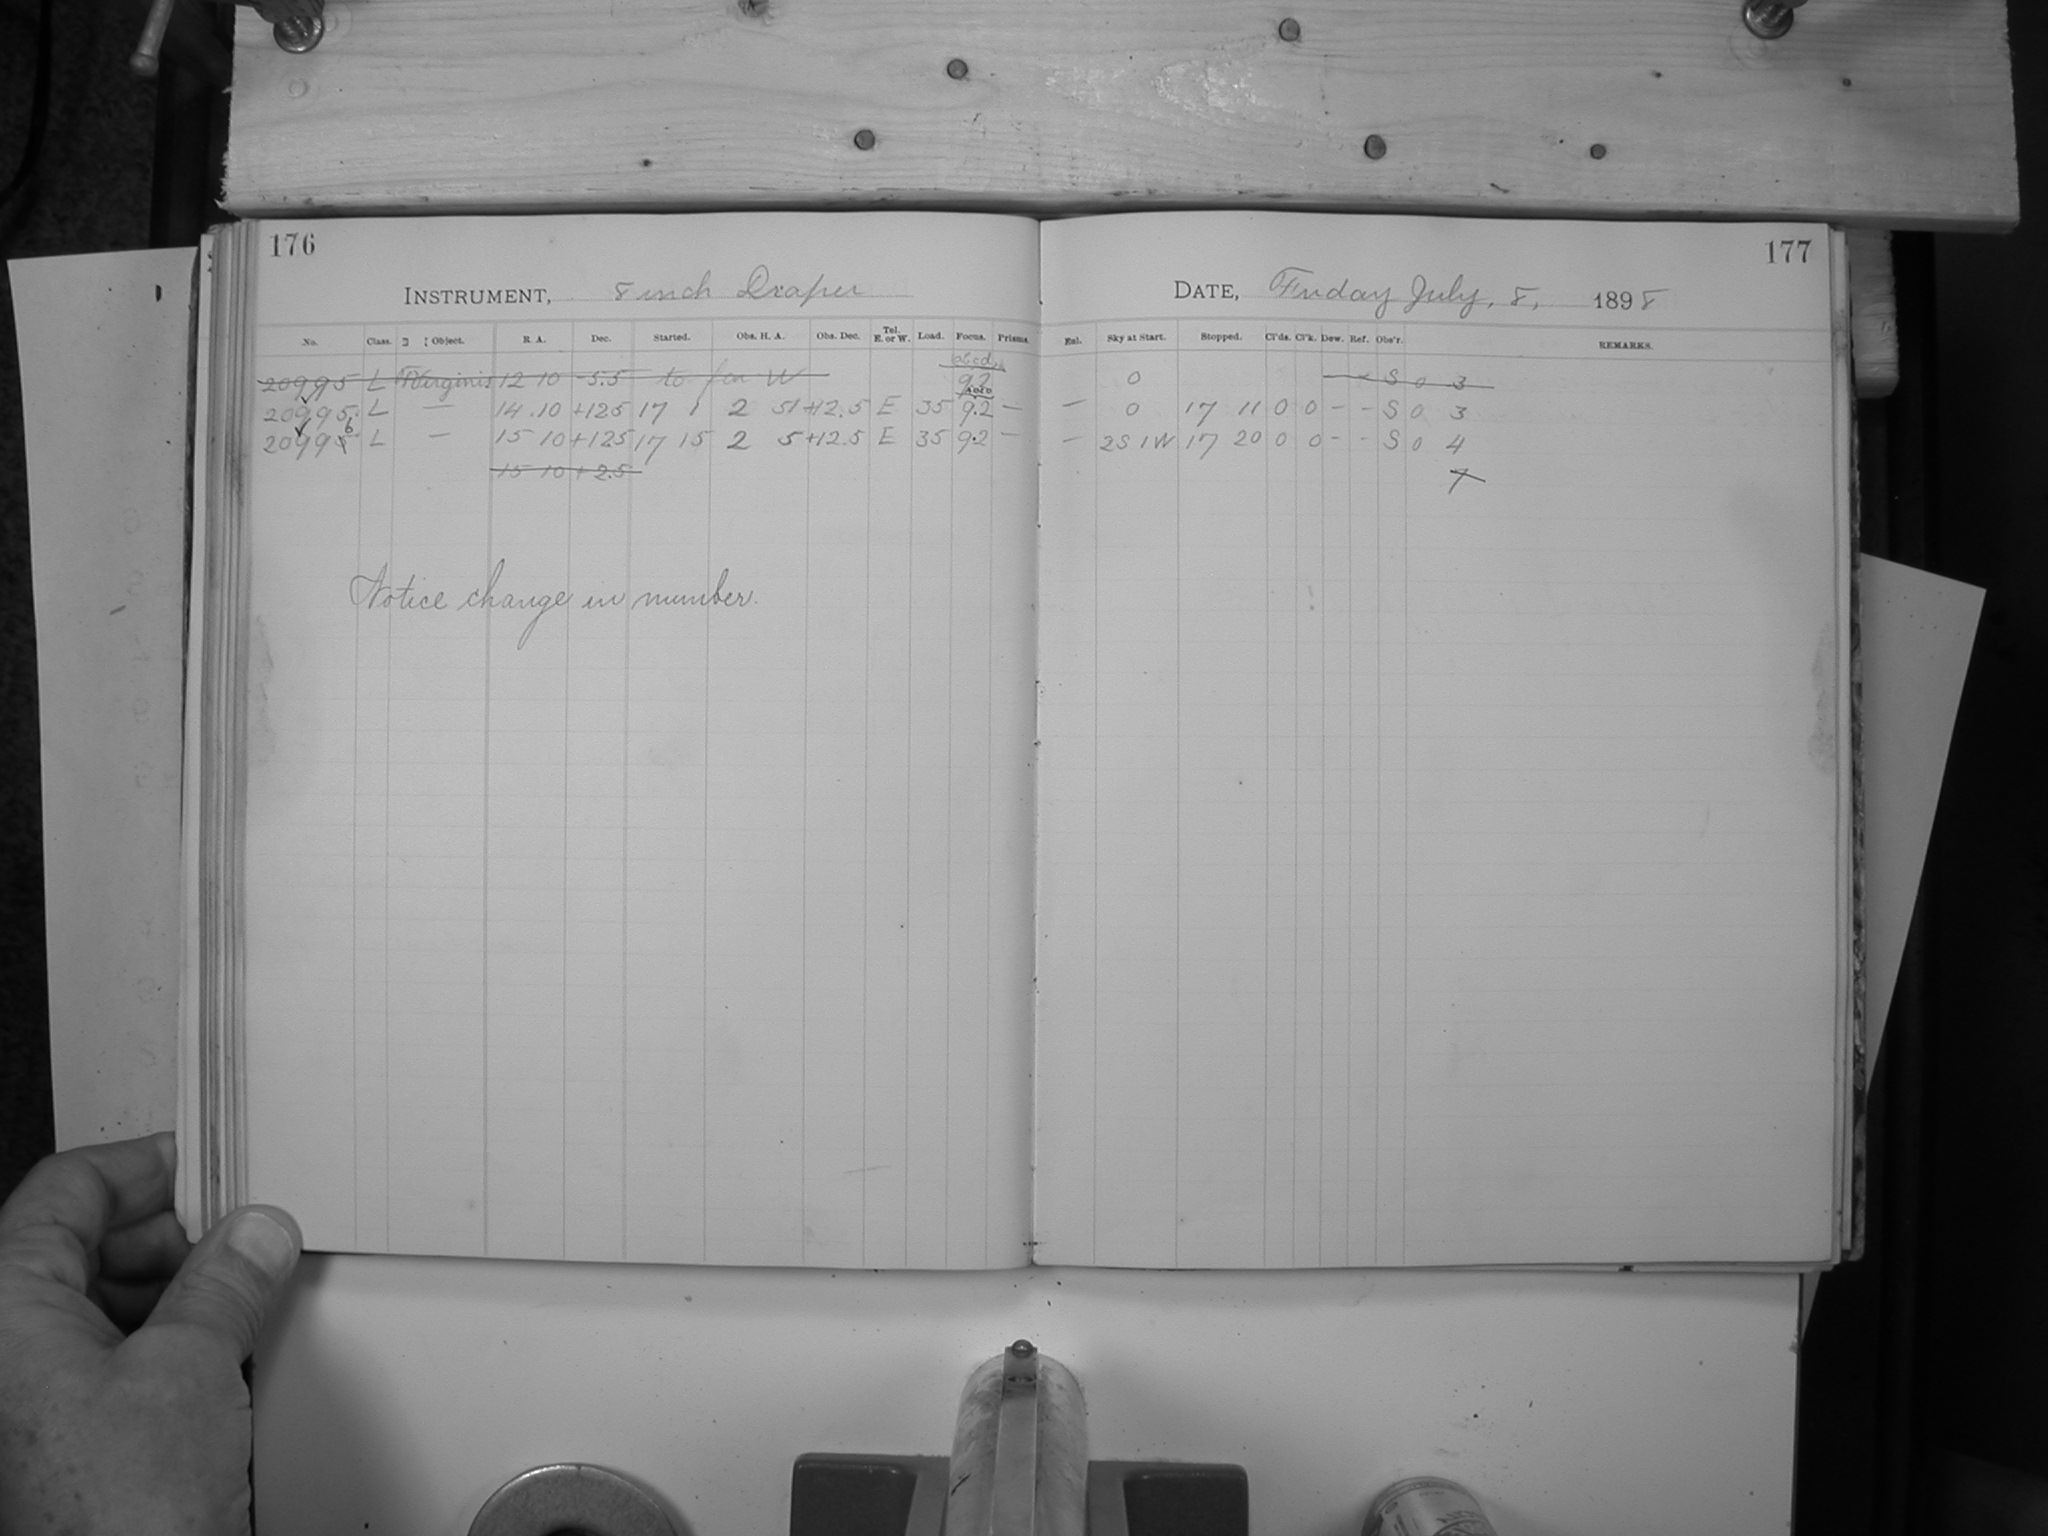 176
INSTRUMENT, 8 inch Draper
No. Class. Object. R. A. Dec. Started. Obs. H. A. Obs. Dec. Tel. E. or W. Load. Focus. Prisms.
20995 L Virginis 12 10 -5.5 to far W 9.2
20995 L — 14 10 +12.5 17 1 2 51 +12.5 E 35 9.2 —
20996 L — 15 10 +12.5 17 15 2 5 +12.5 E 35 9.2 —
15 10 +2.5
Notice change in number.
177
DATE, Friday July, 8, 1898
Enl. Sky at Start. Stopped. Cl'ds. Cl'k. Dew. Ref. Obs'r. REMARKS.
0 — S 0 3
— 0 17 11 0 0 - - S 0 3
— 2S 1W 17 20 0 0 - - S 0 4
7